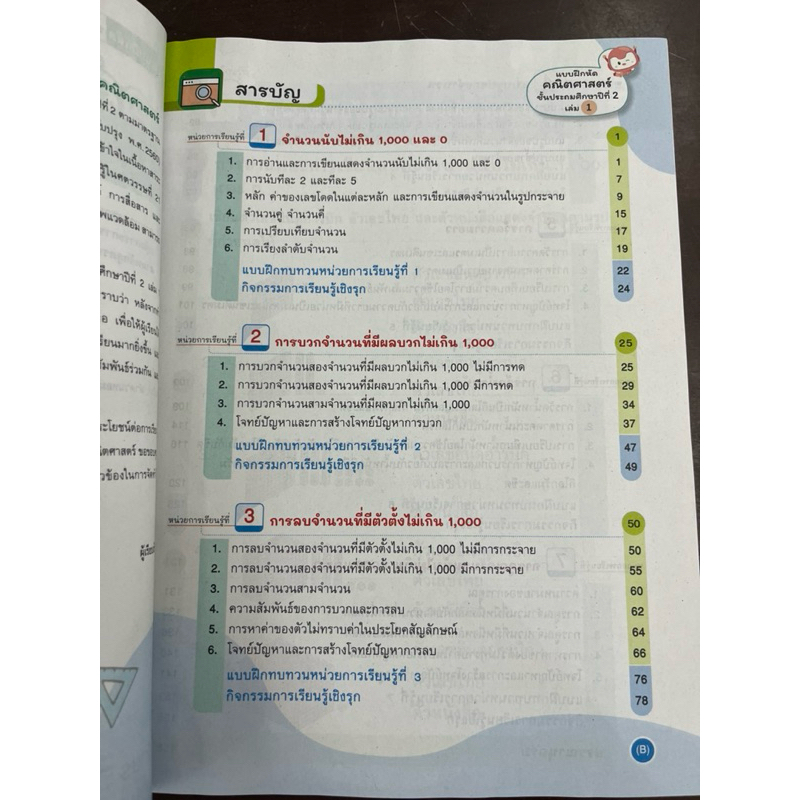 คณิตศาสตร์
ที่ 2 ตามมาตรฐาน
พ.ศ. 2560)
การสื่อสาร และ
ศึกษาปีที่ 2 เล่ม
ราบว่า หลังจาก
เพื่อให้ผู้เรียน
เรียนมากยิ่งขึ้น
สัมพันธ์ร่วมกัน
ประโยชน์ต่อการเรียน
สารบัญ
แบบฝึกหัด
คณิตศาสตร์
ชั้นประถมศึกษาปีที่ 2
เล่ม 1
หน่วยการเรียนรู้ที่ 1 จำนวนนับไม่เกิน 1,000 และ 0 1
1. การอ่านและการเขียนแสดงจำนวนนับไม่เกิน 1,000 และ 0 1
2. การนับทีละ 2 และทีละ 5 7
3. หลัก ค่าของเลขโดดในแต่ละหลัก และการเขียนแสดงจำนวนในรูปกระจาย 9
4. จำนวนคู่ จำนวนคี่ 15
5. การเปรียบเทียบจำนวน 17
6. การเรียงลำดับจำนวน 19
แบบฝึกทบทวนหน่วยการเรียนรู้ที่ 1 22
กิจกรรมการเรียนรู้เชิงรุก 24
หน่วยการเรียนรู้ที่ 2 การบวกจำนวนที่มีผลบวกไม่เกิน 1,000 25
1. การบวกจำนวนสองจำนวนที่มีผลบวกไม่เกิน 1,000 ไม่มีการทด 25
2. การบวกจำนวนสองจำนวนที่มีผลบวกไม่เกิน 1,000 มีการทด 29
3. การบวกจำนวนสามจำนวนที่มีผลบวกไม่เกิน 1,000 34
4. โจทย์ปัญหาและการสร้างโจทย์ปัญหาการบวก 37
แบบฝึกทบทวนหน่วยการเรียนรู้ที่ 2 47
กิจกรรมการเรียนรู้เชิงรุก 49
หน่วยการเรียนรู้ที่ 3 การลบจำนวนที่มีตัวตั้งไม่เกิน 1,000 50
1. การลบจำนวนสองจำนวนที่มีตัวตั้งไม่เกิน 1,000 ไม่มีการกระจาย 50
2. การลบจำนวนสองจำนวนที่มีตัวตั้งไม่เกิน 1,000 มีการกระจาย 55
3. การลบจำนวนสามจำนวน 60
4. ความสัมพันธ์ของการบวกและการลบ 62
5. การหาค่าของตัวไม่ทราบค่าในประโยคสัญลักษณ์ 64
6. โจทย์ปัญหาและการสร้างโจทย์ปัญหาการลบ 66
แบบฝึกทบทวนหน่วยการเรียนรู้ที่ 3 76
กิจกรรมการเรียนรู้เชิงรุก 78
(B)